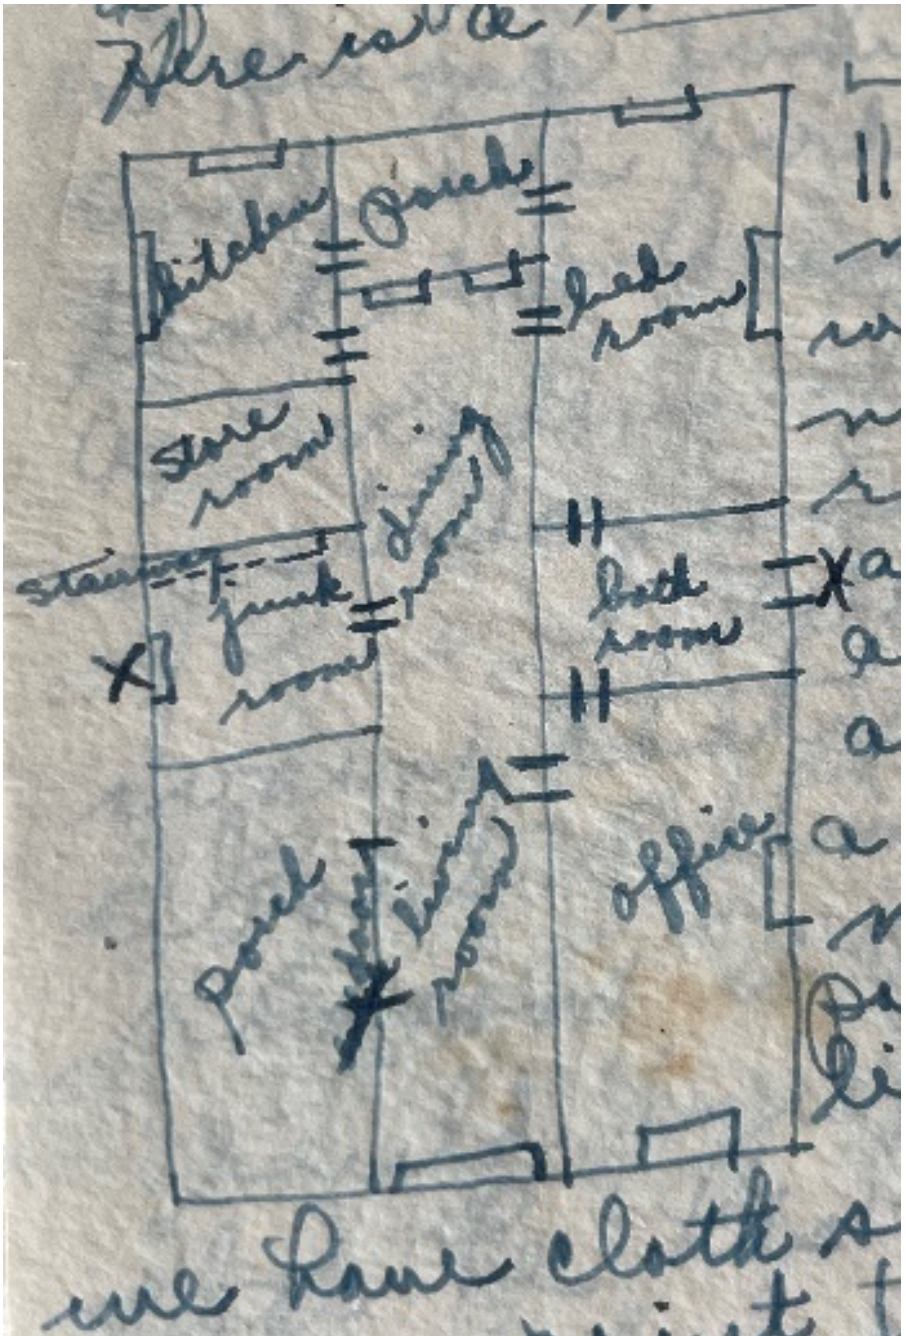 Here is a
kitchen
porch
bed
room
store
room
dining
room
stairway
junk
room
X
bath
room
X
porch
living
room
office
a
a
a
li
we have cloth s